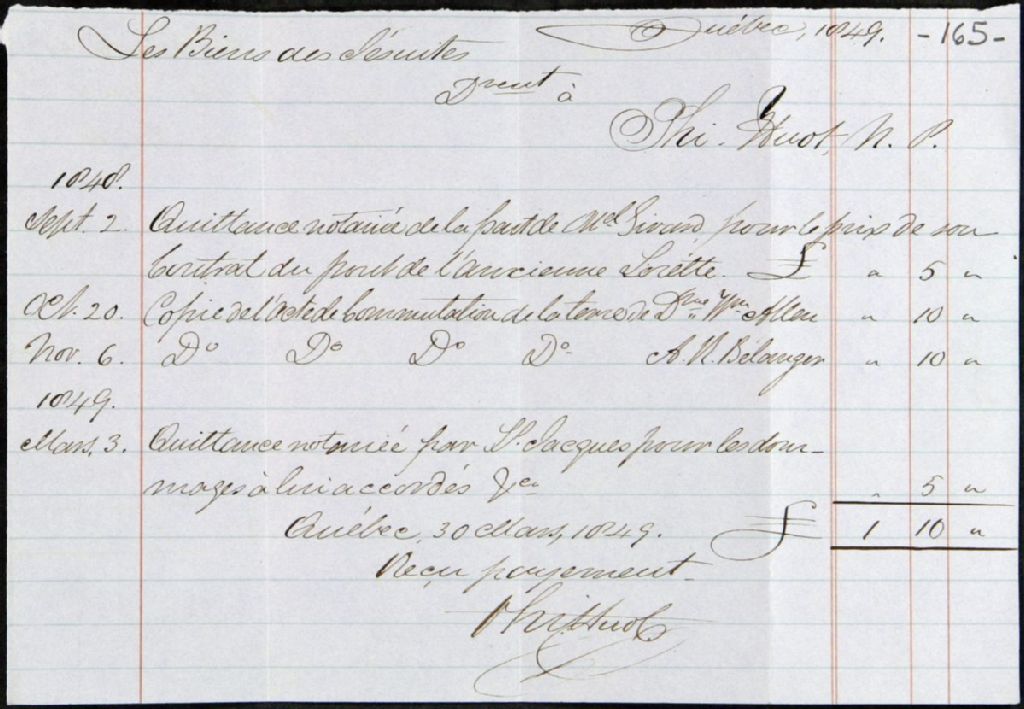 Québec, 1849. -165-
Les Biens des Jésuites
Dvent à
Phi. Huot, N. P.
1848.
Sept. 2. Quittance notariée de la part de Mel Girard, pour le prix de son
Contrat du pont de l'ancienne Lorette. £ " 5 "
Oct. 20. Copie de l'Acte de Commutation de la terre de Dme Wm Allen " 10 "
Nov. 6. Do Do Do Do A. N. Bélanger " 10 "
1849.
Mars, 3. Quittance notariée par St. Jacques pour les dom-
mages à lui accordés &ca " 5 "
Québec, 30 Mars, 1849. £ 1 10 "
Reçu payement
Phi Huot